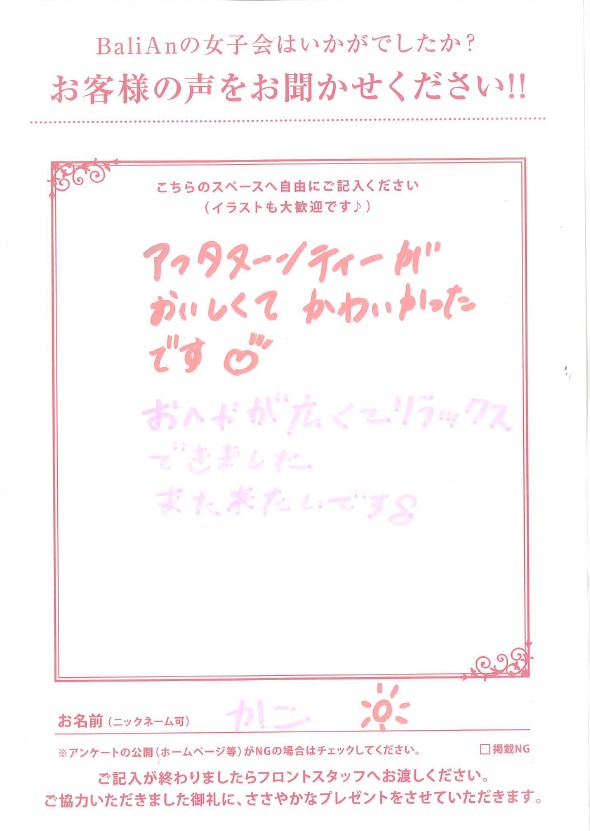 BaliAnの女子会はいかがでしたか?
お客様の声をお聞かせください!!
こちらのスペースへ自由にご記入ください
(イラストも大歓迎です♪)
アフタヌーンティーが
おいしくて かわいかった
です♡
おへやが広くてリラックス
できました。
また来たいです
お名前(ニックネーム可)
かこ
※アンケートの公開(ホームページ等)がNGの場合はチェックしてください。 □掲載NG
ご記入が終わりましたらフロントスタッフへお渡しください。
ご協力いただきました御礼に、ささやかなプレゼントをさせていただきます。